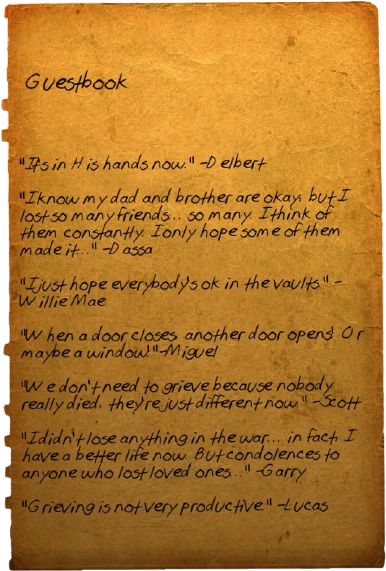 Guestbook
"It's in His hands now." -Delbert
"I know my dad and brother are okay, but I
lost so many friends... so many. I think of
them constantly. I only hope some of them
made it..." -Dassa
"I just hope everybody's ok in the vaults." -
Willie Mae
"When a door closes, another door opens! Or
maybe a window!" -Miguel
"We don't need to grieve because nobody
really died, they're just different now." -Scott
"I didn't lose anything in the war... in fact, I
have a better life now. But condolences to
anyone who lost loved ones..." -Garry
"Grieving is not very productive." -Lucas